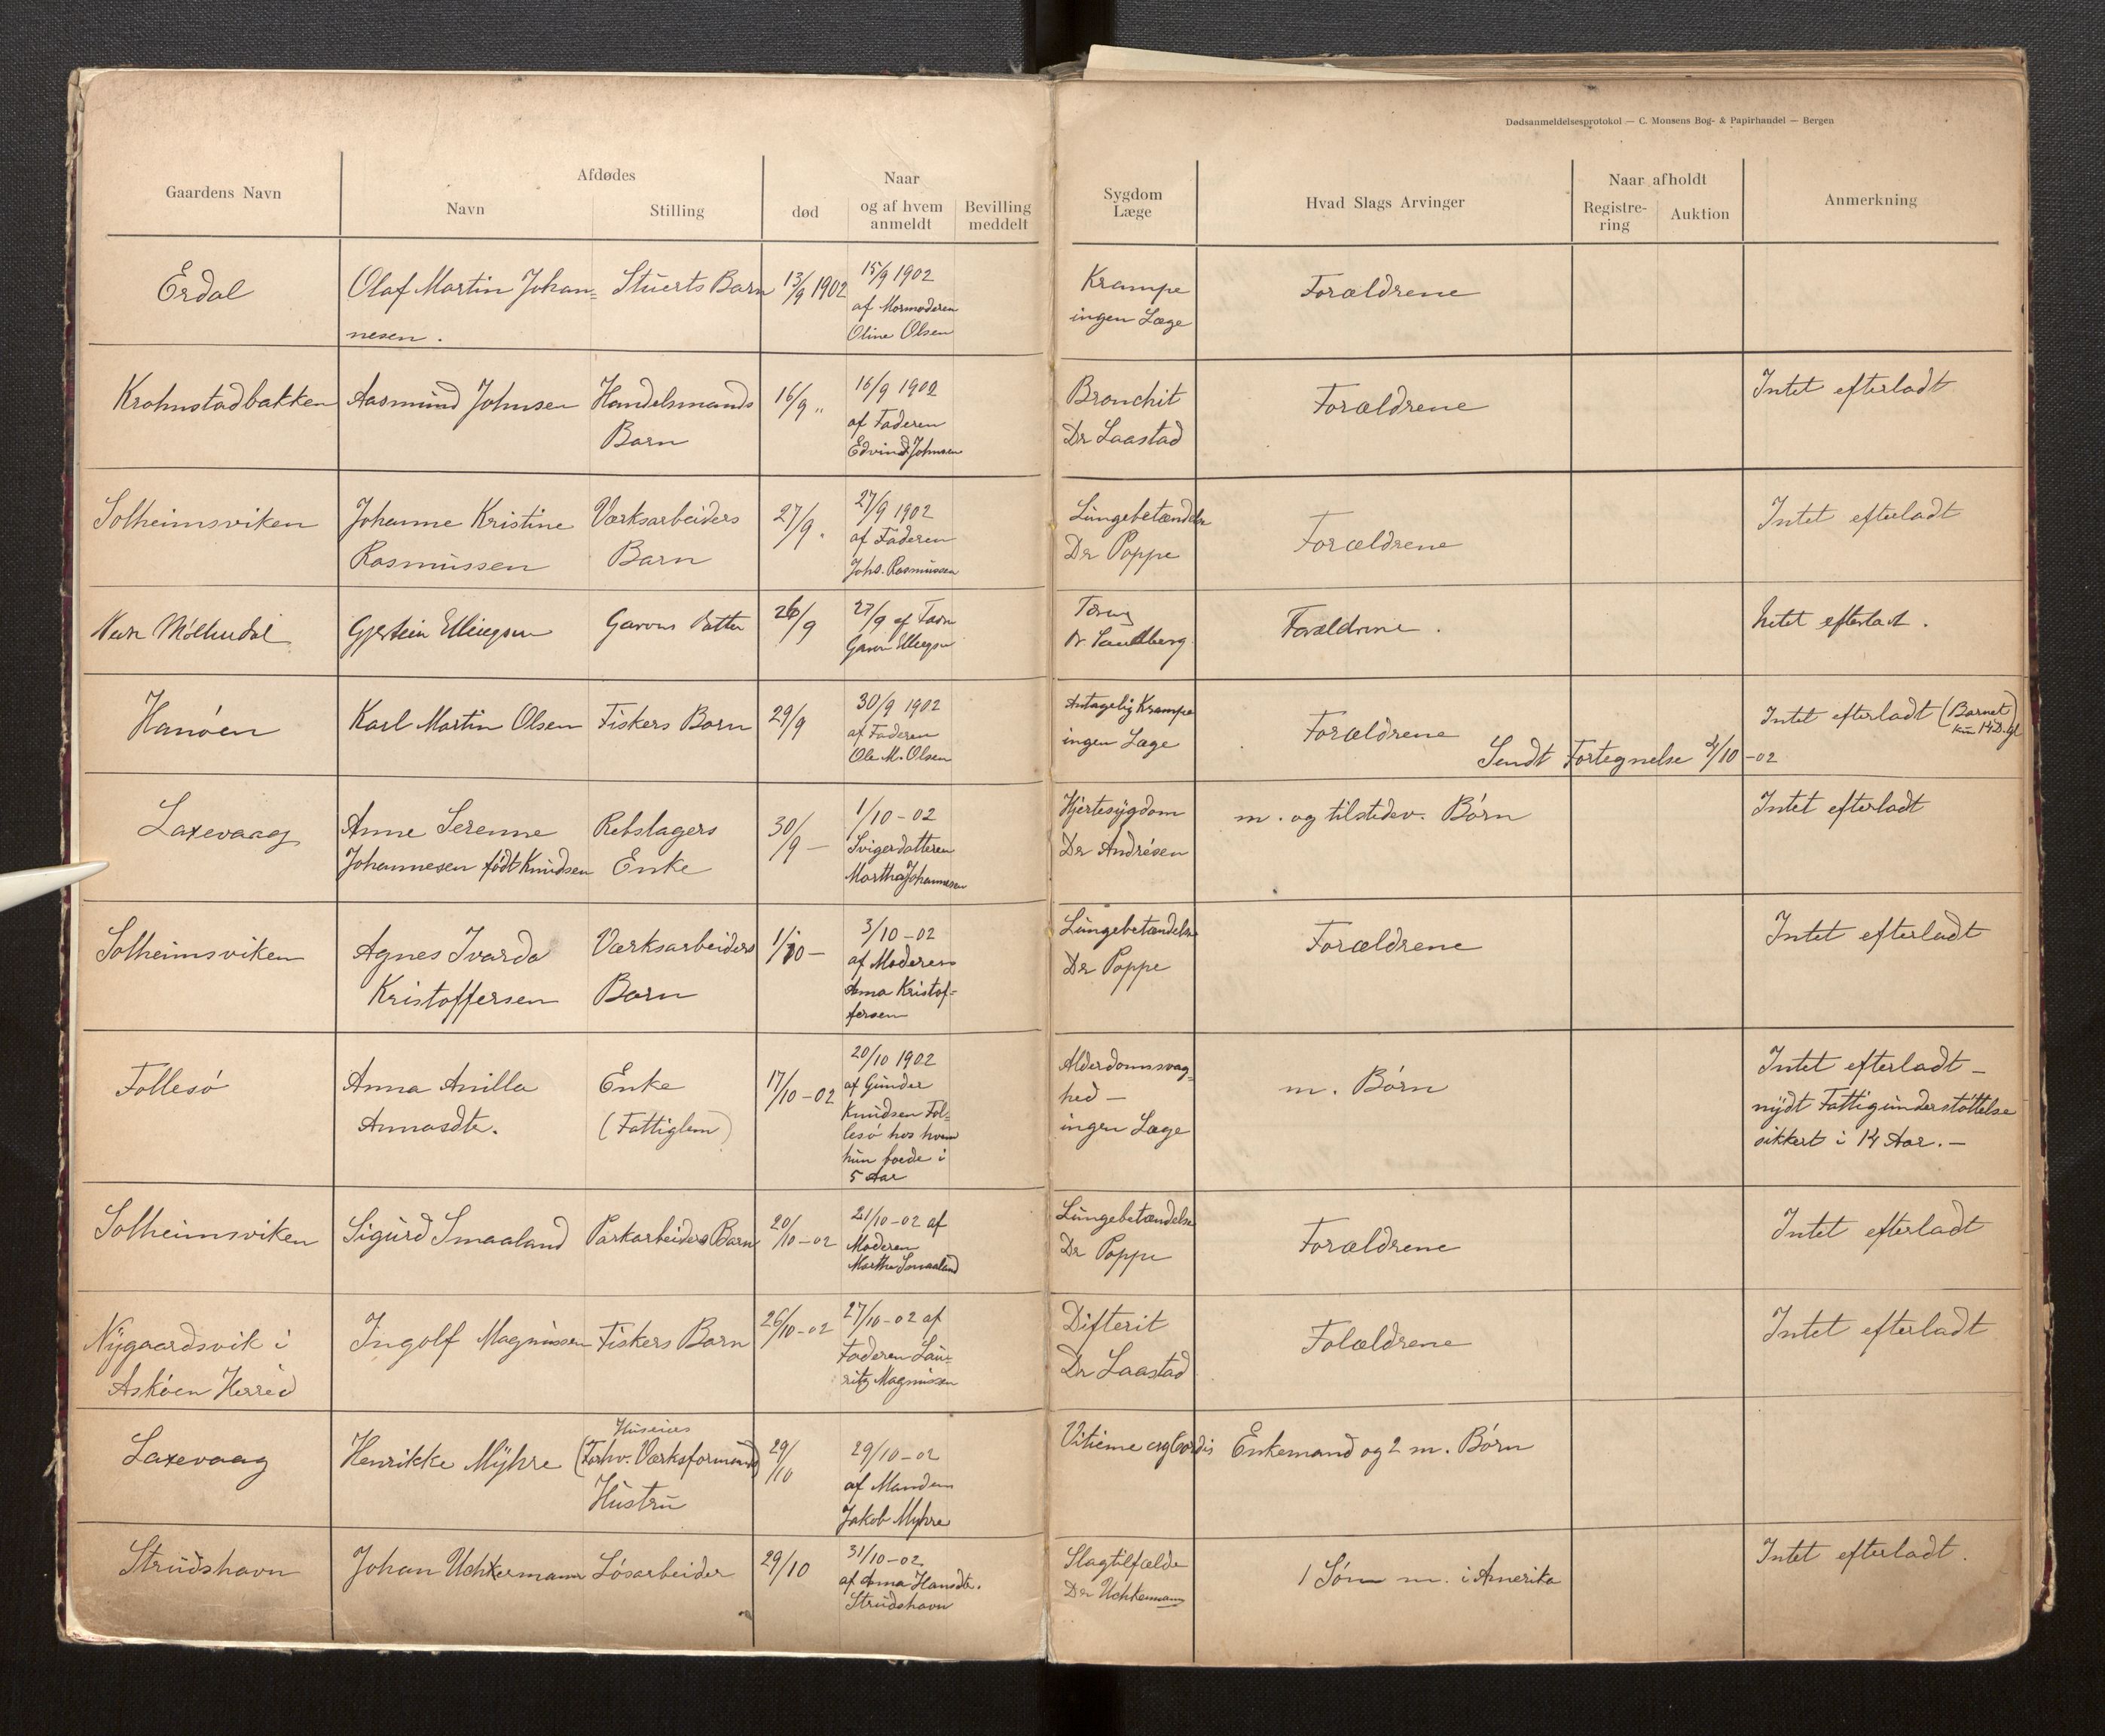 Dødsanmeldelsesprotokol — C. Monsens Bog- & Papirhandel — Bergen
Gaardens Navn
Afdødes
Navn
Stilling
død
Naar
og af hvem
anmeldt
Bevilling
meddelt
Sygdom
Læge
Hvad Slags Arvinger
Naar afholdt
Registre-
ring
Auktion
Anmerkning
Erdal
Olaf Martin Johan=
nesen.
Stuerts Barn
13/9 1902
15/9 1902
af Mormoderen
Oline Olsen
Krampe
ingen Læge
Forældrene
Krohnstadbakken
Aasmund Johnsen
Handelsmands
Barn
16/9 "
16/9 1902
af Faderen
Edvind Johnsen
Bronchit
Dr Laastad
Forældrene
Intet efterladt
Solheimsviken
Johanne Kristine
Rasmussen
Værksarbeiders
Barn
27/9.
27/9 1902
af Faderen
Johs. Rasmussen
Lungebetændelse
Dr Poppe
Forældrene
Intet efterladt
Gjertein Ellingsen
Garvers Datter
26/9
27/9 af Fadn
Garver Ellingsen
Tæring
Dr. Sandberg
Forældrene.
Intet efterladt.
Hanøen
Karl Martin Olsen
Fiskers Barn
29/9
30/9 1902
af Faderen
Ole M. Olsen
Antagelig Krampe
ingen Læge
Forældrene
Intet efterladt (Barnet
kun 14 D. gl
Sendt Fortegnelse 2/10-02
Laxevaag
Anne Serenne
Johannesen født Knudsen
Rebslagers
Enke
30/9 —
1/10-02
Svigerdatteren
Martha Johannesen
Hjertesygdom
Dr Andrésen
m. og tilstedev. Børn
Intet efterladt
Solheimsviken
Agnes Ivarda
Kristoffersen
Værksarbeiders
Barn
1/10 —
3/10-02
af Moderen
Anna Kristof=
fersen
Lungebetændelse
Dr Poppe
Forældrene
Intet efterladt
Follesø
Anna Anilla
Annasdtr.
Enke
(Fattiglem)
17/10-02
20/10 1902
af Gunder
Knudsen Fol=
lesø hos hvem
hun boede i
5 Aar
Alderdomssvag=
hed —
ingen Læge
m. Børn
Intet efterladt —
nydt Fattigunderstøttelse
sikkert i 14 Aar. —
Solheimsviken
Sigurd Smaaland
Parkarbeiders Barn
20/10-02
21/10-02 af
Moderen
Martha Smaaland
Lungebetændelse
Dr Poppe
Forældrene
Intet efterladt
Nygaardsvik i
Askøen Herred
Ingolf Magnussen
Fiskers Barn
26/10-02
27/10-02 af
Faderen Lau=
ritz Magnussen
Difterit
Dr Laastad
Folældrene
Intet efterladt
Laxevaag
Henrikke Myhre
Huseiers
(Forhv. Værksformand)
Hustru
29/10
29/10-02
af Manden
Jakob Myhre
Vitieme org Cordis
Enkemand og 2 m. Børn
Strudshavn
Johan Uchermann
Løsarbeider
29/10
31/10-02
af Anna Hansdtr.
Strudshavn
Slagtilfælde
Dr Uchermann
1 Søn m. i Amerika
Intet efterladt.